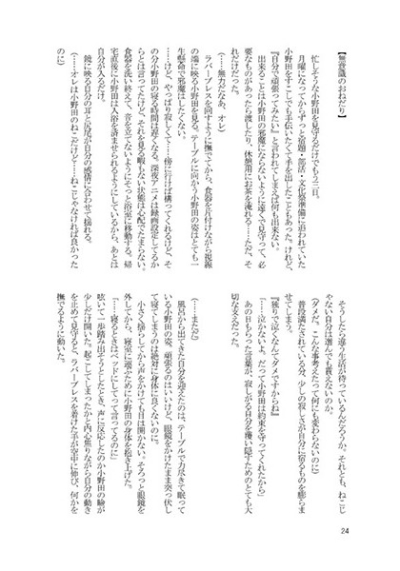 【無意識のおねだり】
忙しそうな小野田を見守るだけでもう三日。
月曜になってからずっと宿題・部活・文化祭準備に追われていた
小野田をすこしでも手伝いたくて手を出したこともあった。けれど、
『自分で頑張ってみたい』と言われてしまえば何も出来ない。
出来ることは小野田の邪魔にならないように遠くで見守って、必
要なものがあったら渡したり、休憩用にお茶を淹れる……ただ、そ
れだけだった。
(……無力だなぁ、オレ)
ラバーブレスを回すように撫でてから、食器を片付けながら視線
の端に映る小野田を見る。テーブルに向かう小野田の姿はとても一
生懸命で邪魔はしたくない。
……けど、やっぱり寂しくて……傍に行けば構ってくれるけど、そ
の分小野田の寝る時間は遅くなる。深夜アニメは録画設定してるか
らとは言ってたけど、それを見る暇もない状態は心配でたまらない。
食器を洗い終えて、音を立てないようにそっと浴室に移動する。帰
宅直後に小野田は入浴を済ませられるようにしているから、あとは
自分が入るだけ。
鏡に映る自分の耳と尻尾が自分の感情に合わせて揺れる。
(……オレは小野田のねこだけど……ねこじゃなければ良かった
のに)
そうしたら違う生活が待っているんだろうか。それとも、ねこじ
ゃない自分は選んでも貰えないのか。
(ダメだ、こんな事考えたって何にも変わらないのに)
普段満たされている分、少しの寂しさが自分に宿るものを膨らま
せてしまう。
『独りで泣くなんてダメですからね』
(……泣かないよ。だって小野田は約束を守ってくれたから)
あの日もらった言葉が、寂しがる自分を覆い隠すためのとても大
切な支えだった。
(……まただ)
風呂から出てきた自分を迎えたのは、テーブルで力尽きて眠って
いる小野田の姿。頑張るのはいいけど、眼鏡をかけたまま突っ伏し
て寝てしまうのは絶対に身体に良くないのに。
小さく揺らしてから声をかけても目は開かない。そろっと眼鏡を
外してから、寝室に運ぶために小野田の身体を抱き上げた。
「……寝るときはベッドにしてって言ってるのに」
呟いて一歩踏み出そうとしたとき、声に反応したのか小野田の瞼が
少しだけ開いた。起こしてしまったかと内心焦りながら自分の動き
を止めて見守ると、ラバーブレスを着けた手が空中に伸び、何かを
撫でるように動いた。
24